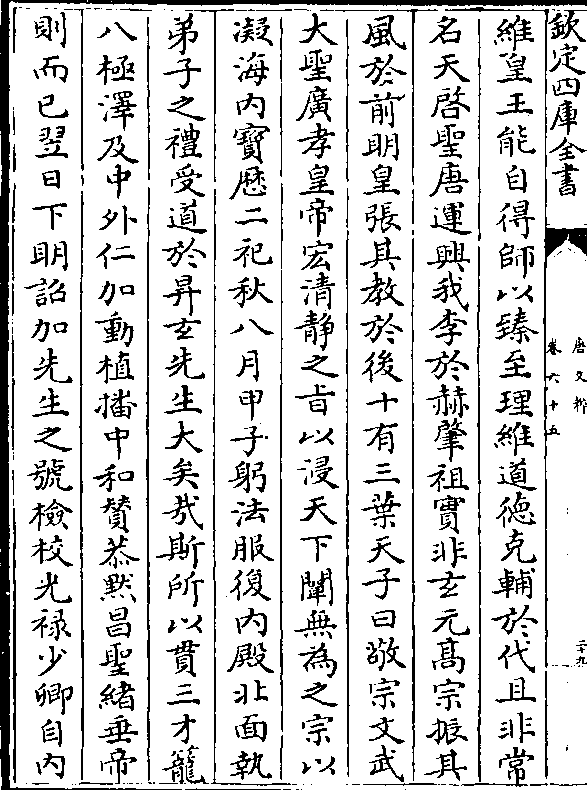 欽定四庫全書
唐文粹
卷六十五
二十九
維皇王能自得師以臻至理維道德克輔於代且非常
名天啓聖唐運興我李於赫肇祖實非玄元高宗振其
風於前明皇張其教於後十有三葉天子曰敬宗文武
大聖廣孝皇帝宏清靜之旨以浸天下闡無為之宗以
凝海内寶厯二祀秋八月甲子躬法服復内殿北面執
弟子之禮受道於昇玄先生大矣哉斯所以貫三才籠
八極澤及中外仁加動植播中和贊恭黙昌聖緒垂帝
則而已翌日下明詔加先生之號檢校光禄少卿自内